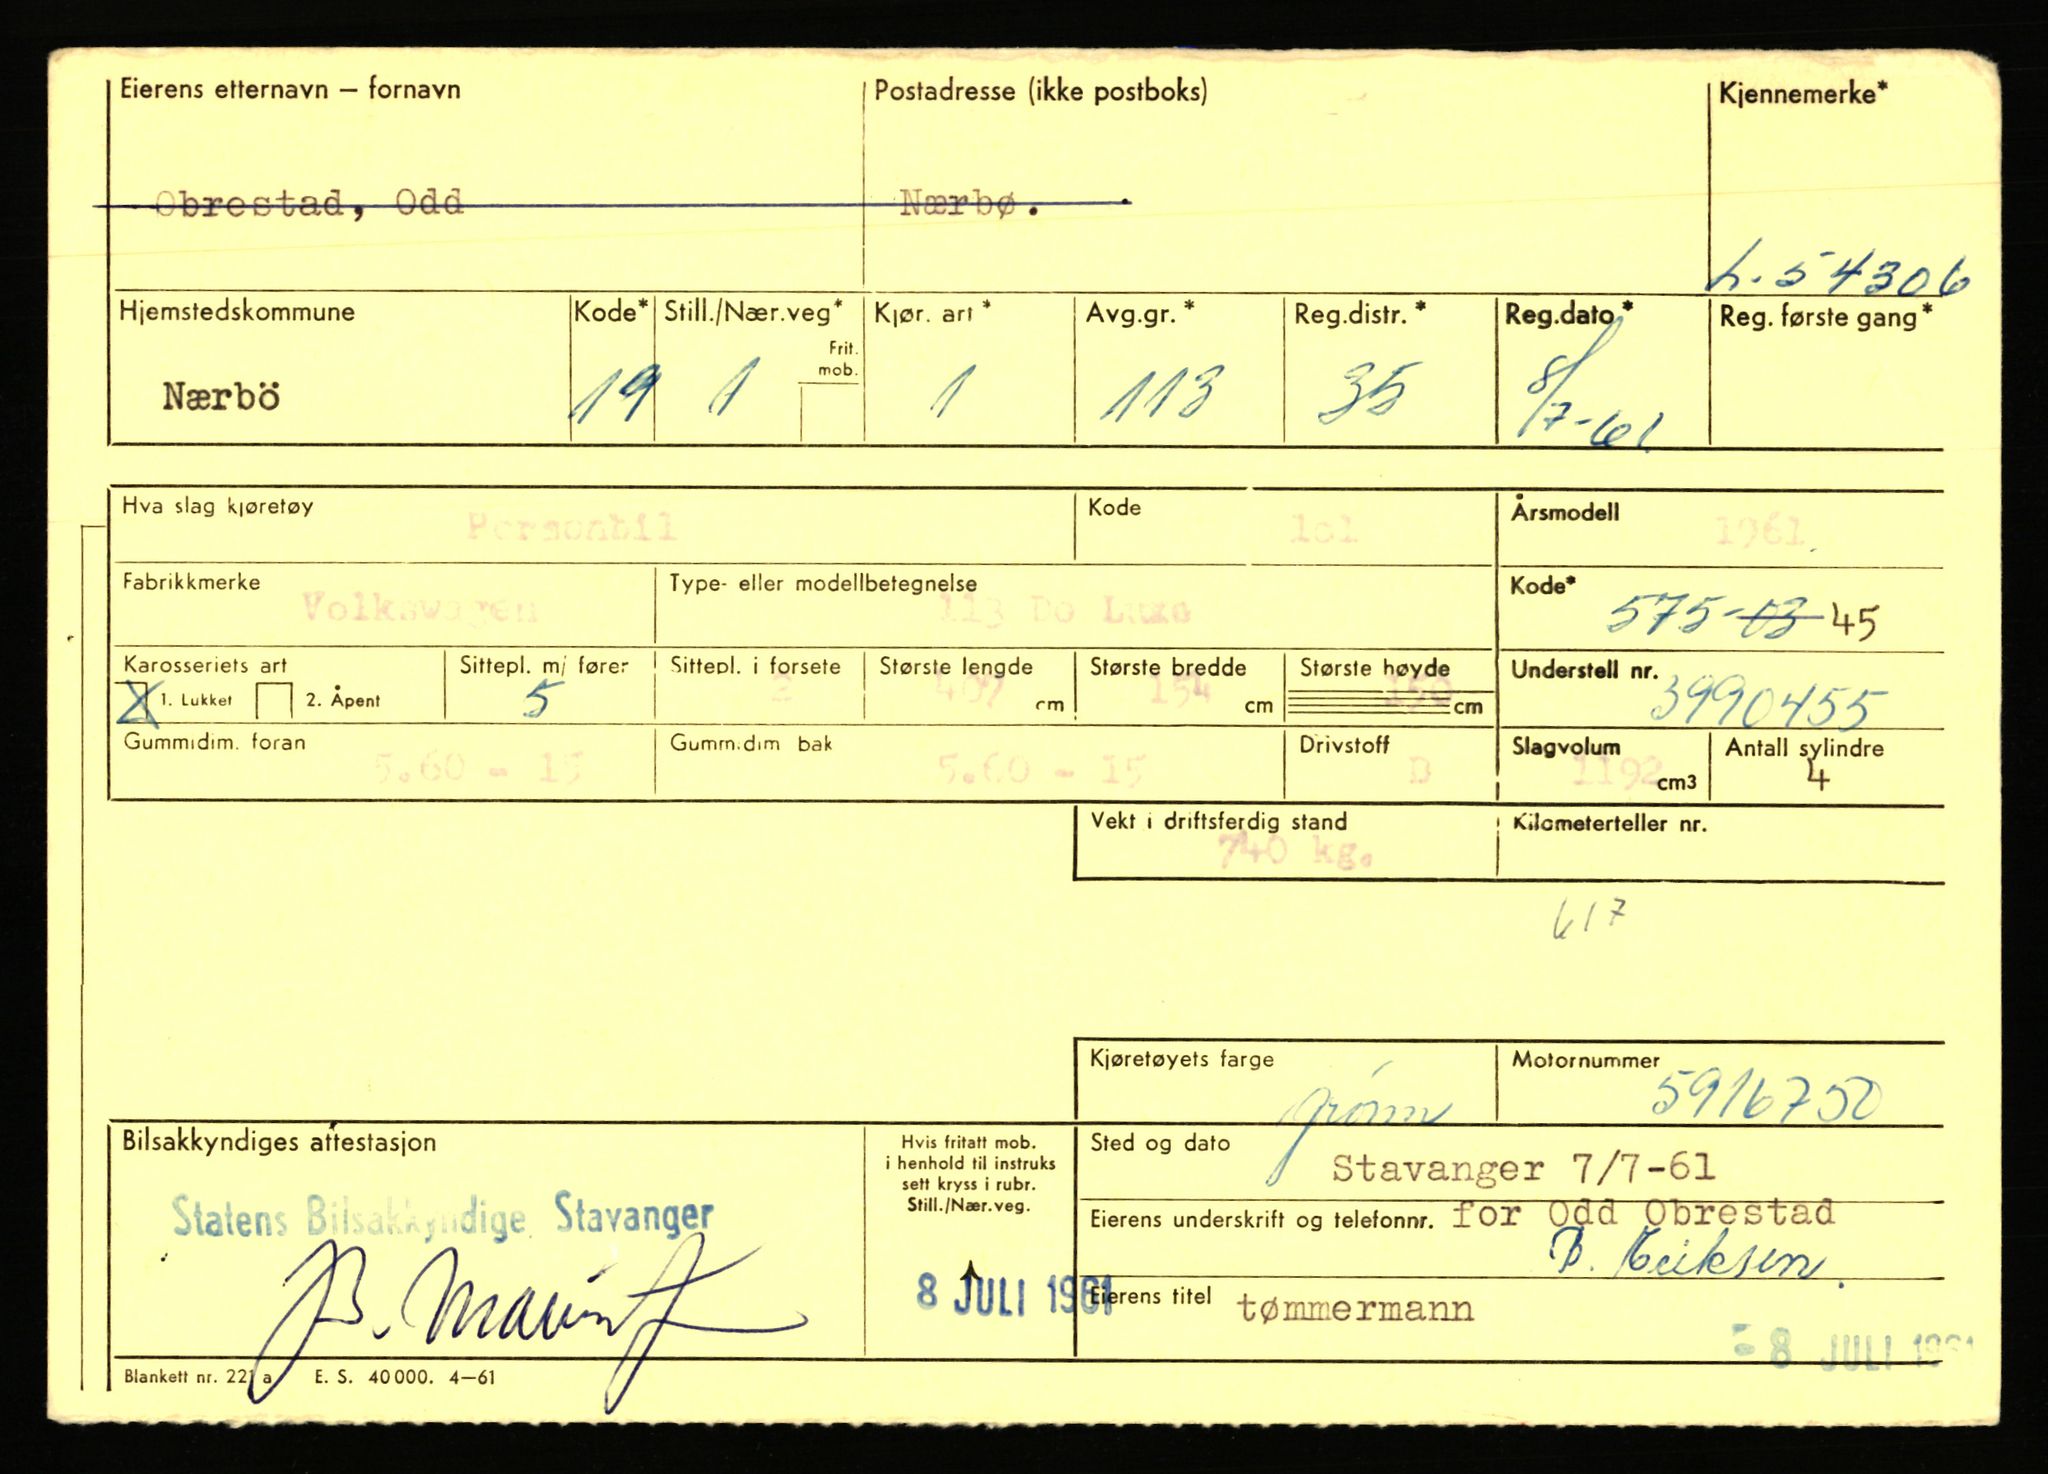 Eierens etternavn – fornavn Postadresse (ikke postboks) Kjennemerke*
Obrestad, Odd Nærbø.
L. 54306
Hjemstedskommune Kode* Still./Nær.veg* Kjør. art* Avg.gr.* Reg.distr.* Reg.dato* Reg. første gang*
Frit.
mob.
Nærbö 19 1 1 113 35 8/7-61
Hva slag kjøretøy Kode Årsmodell
Personbil 101 1961
Fabrikkmerke Type- eller modellbetegnelse Kode*
Volkswagen 113 De Luxe 575-03 45
Karosseriets art Sittepl. m/ fører Sittepl. i forsete Største lengde Største bredde Største høyde Understell nr.
X 1. Lukket 2. Åpent 5 2 407 cm 154 cm 150 cm 3990455
Gummidim. foran Gummidim bak Drivstoff Slagvolum Antall sylindre
5.60 - 15 5.60 - 15 B 1192 cm3 4
Vekt i driftsferdig stand Kilometerteller nr.
740 kg.
617
Kjøretøyets farge Motornummer
grønn 5916750
Bilsakkyndiges attestasjon Hvis fritatt mob. Sted og dato
i henhold til instruks
sett kryss i rubr.
Still./Nær.veg.
Stavanger 7/7-61
Statens Bilsakkyndige, Stavanger
Eierens underskrift og telefonnr. for Odd Obrestad
B. Eriksen.
8 JULI 1961
Eierens titel tømmermann
- 8 JULI 1961
Blankett nr. 221 a E. S. 40 000. 4–61